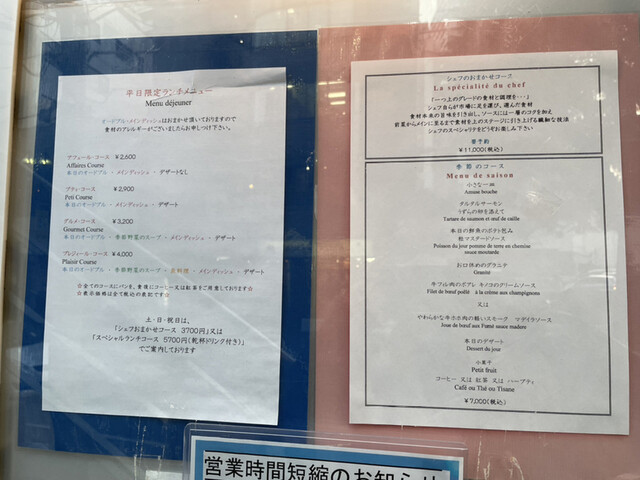 平日限定ランチメニュー
Menu déjeuner
オードブル・メインディッシュはおまかせ頂いておりますので
食材のアレルギーがございましたらお申しつけ下さい。
アフェール・コース ￥2,600
Affaires Course
本日のオードブル ・ メインディッシュ ・ デザートなし
プティ・コース ￥2,900
Peti Course
本日のオードブル ・ メインディッシュ ・ デザート
グルメ・コース ￥3,200
Gourmet Course
本日のオードブル ・ 季節野菜のスープ ・ メインディッシュ ・ デザート
プレジィール・コース ￥4,000
Plaisir Course
本日のオードブル ・ 季節野菜のスープ ・ 魚料理 ・ メインディッシュ ・ デザート
☆全てのコースにパンを、食後にコーヒー又は紅茶をご用意しております☆
☆表示価格は全て税込の表記です☆
土・日・祝日は、
「シェフおまかせコース 3700円」又は
「スペシャルランチコース 5700円(乾杯ドリンク付き)」
でご案内しております
シェフのおまかせコース
La spécialité du chef
「一つ上のグレードの食材と調理を・・」
シェフ自らが市場に足を運び、選んだ食材
食材本来の旨味を引き出し、ソースには一層のコクを加え
前菜からメインに至るまで素材を上のステージに引き上げる繊細な技法
シェフのスペシャリテをどうぞお楽しみ下さい
要予約
￥11,000(税込)
季節のコース
Menu de saison
小さな一皿
Amuse bouche
タルタルサーモン
うずらの卵を添えて
Tartare de saumon et œuf de caille
本日の鮮魚のポテト包み
粒マスタードソース
Poisson du jour pomme de terre en chemise
sauce moutarde
お口休めのグラニテ
Granité
牛フィレ肉のポアレ キノコのクリームソース
Filet de bœuf poêlé à la crème aux champignons
又は
やわらかな牛ホホ肉の軽いスモーク マデイラソース
Joue de bœuf aux Fumé sauce madere
本日のデザート
Dessert du jour
小菓子
Petit fruit
コーヒー 又は 紅茶 又は ハーブティ
Café ou Thé ou Tisane
￥7,000(税込)
営業時間短縮のお知らせ